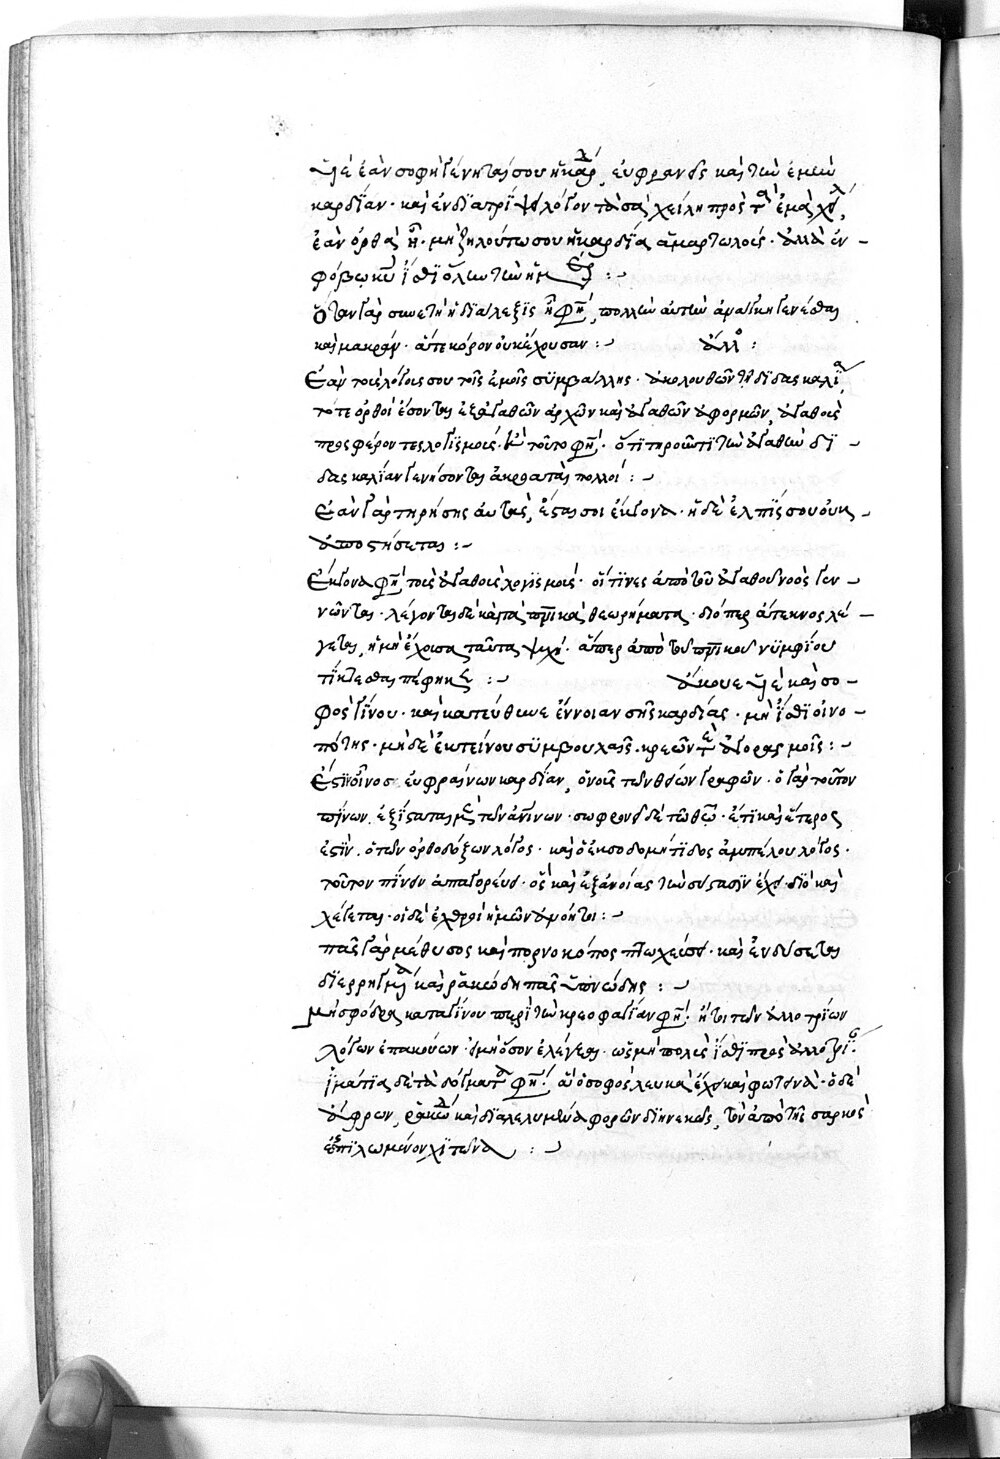 Υἱὲ ἐὰν σοφὴ γένηταί σου ἡ καρδ, εὐφρανεῖς καὶ τὴν ἐμὴν
καρδίαν· καὶ ἐνδιατρίψει λόγοις τὰ σὰ χείλη πρὸς τὰ ἐμὰ χείλ,
ἐὰν ὀρθὰ ἦ· μὴ ζηλούτω σου ἡ καρδία ἁμαρτωλούς· ἀλλὰ ἐν
φόβῳ κυ ἴσθι ὅλην τὴν ἡμέρ :~
ὅταν γὰρ συνετὴ ἡ διάλεξις ἦ φη, πολλὴν αὐτὴν ἀνάγκη γενέσθαι
καὶ μακράν· ἅτε κόρον οὐκ ἔχουσαν :~ ἄλλο :
Ἐὰν τοὺς λόγους σου τοῖς ἐμοῖς συμβάλλης· ἀκολουθῶν τῆ διδασκαλία,
τότε ὀρθοὶ ἔσονται ἐξ ἀγαθῶν ἀρχῶν καὶ ἀγαθῶν ἀφορμῶν, ἀγαθοὺς
προσφέροντες λογισμούς· καὶ τοῦτο φη· ὅτι τηροῦντι τὴν ἀγαθὴν δι
δασκαλίαν γενήσονται ἀκροαταὶ πολλοί :~
Ἐὰν γὰρ τηρήσης αὐτὰς, ἔσται σοι ἔκγονα· ἡ δὲ ἐλπίς σου οὐκ
ἀποστήσεται :~
Ἔκγονα φη τοὺς ἀγαθοὺς λογισμούς· οἵτινες ἀπὸ τοῦ ἀγαθοῦ νοὸς γεν
νῶνται· λέγονται δὲ καὶ τὰ πνικὰ θεωρήματα· διόπερ ἄτεκνος λέ
γεται, ἡ μὴ ἔχουσα ταῦτα ψυχή· ἅπερ ἀπὸ τοῦ πνικοῦ νυμφίου
τίκτεσθαι πέφυκε :~ ἄκουε υἱὲ καὶ σο
φὸς γίνου· καὶ κατεύθυνε ἐννοίας σῆς καρδίας· μὴ ἴσθι οἰνο
πότης· μηδὲ ἐκτείνου συμβουλαῖς· κρεῶν τε ἀγορασμοῖς :~
Ἐστὶν οἶνος εὐφραίνων καρδίαν, ὁ νοῦς τῶν θείων γραφῶν· ὁ γὰρ τοῦτον
πίνων, ἐξίσταται μὲν τῶν ἀνίνων· σωφρονεῖ δὲ τῶ θεῶ· ἔτι καὶ ἕτερος
ἐστὶν· ὁ τῶν ὀρθοδόξων λόγος· καὶ ὁ ἐκ σοδομίτιδος ἀμπέλου λόγος·
τοῦτον πίνειν ἀπαγορεύει· ὃς καὶ ἐξ ἀνοίας τὴν σύστασιν ἔχει· διὸ καὶ
λέγεται· οἱ δὲ ἐχθροὶ ἡμῶν ἀνόητοι :~
πᾶς γὰρ μέθυσος καὶ πορνοκόπος πτωχεύσει· καὶ ἐνδύσεται
διερρηγμένα καὶ ῥακώδη πᾶς ὑπνώδης :~
μὴ σφόδρα καταγίνου περὶ τὴν κρεοφαγίαν φη· ἤτοι τῶν ἀλλοτρίων
λόγων ἐπακούων· εἰ μὴ ὅσον ἐλέγξαι· ὡς μὴ πολὺς ἴσθι πρὸς ἀλλοτρί·
ἱμάτια δὲ τὰ δόγματα φη· ἃ ὁ σοφὸς λευκὰ ἔχει καὶ φωτεινὰ· ὁ δὲ
ἄφρων, ῥακώδη καὶ διαλελυμένα φορῶν διηνεκῶς, τὸν ἀπὸ τῆς σαρκὸς
ἐσπιλωμένον χιτῶνα :~